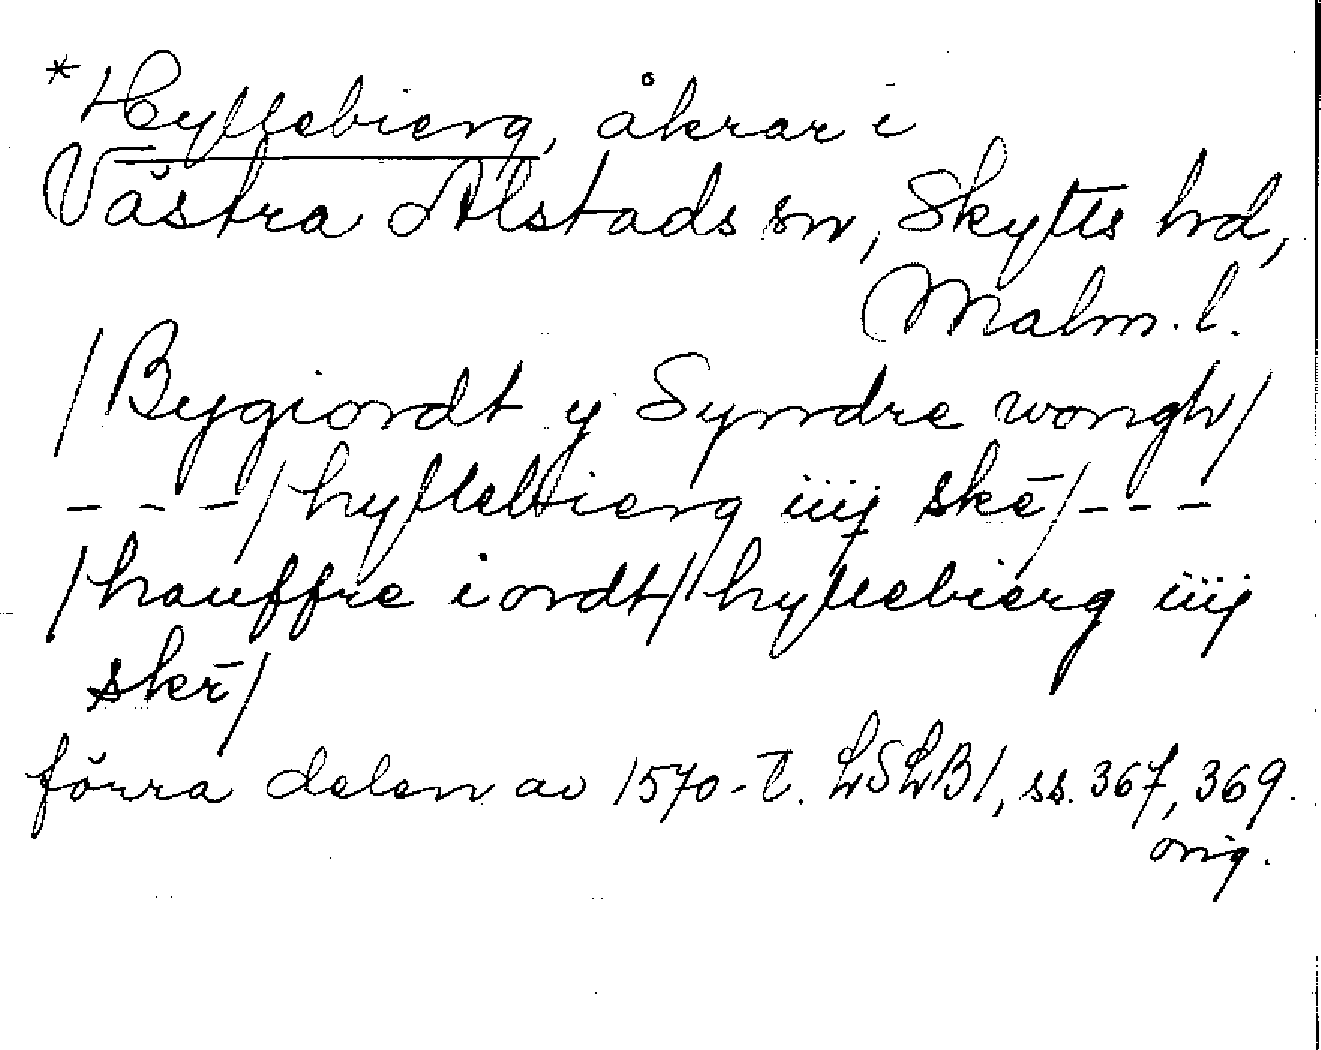 *Hyllebierg, åkrar i
Västra Alstads sn, Skytts hd,
Malm. l.
/Bygiordt y Syndre wongh/
---/hyllebierg iiij skē/---
/hauffre iordt/hyllebierg iiij
skē/
förra delen av 1570-t. LSLB1, ss. 367, 369.
orig.